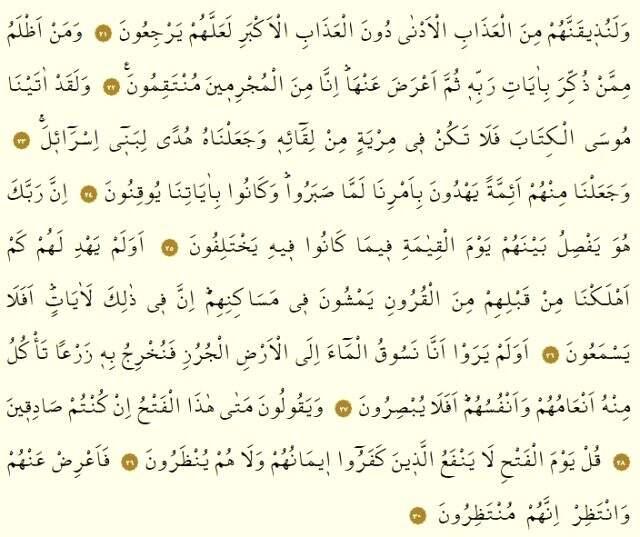 وَلَنُذ۪يقَنَّهُمْ مِنَ الْعَذَابِ الْاَدْنٰى دُونَ الْعَذَابِ الْاَكْبَرِ لَعَلَّهُمْ يَرْجِعُونَ ﴿٢١﴾ وَمَنْ اَظْلَمُ
مِمَّنْ ذُكِّرَ بِاٰيَاتِ رَبِّه۪ ثُمَّ اَعْرَضَ عَنْهَاۜ اِنَّا مِنَ الْمُجْرِم۪ينَ مُنْتَقِمُونَ۟ ﴿٢٢﴾ وَلَقَدْ اٰتَيْنَا
مُوسَى الْكِتَابَ فَلَا تَكُنْ ف۪ي مِرْيَةٍ مِنْ لِقَٓائِه۪ وَجَعَلْنَاهُ هُدًى لِبَن۪ٓي اِسْرَٓائ۪لَۚ ﴿٢٣﴾
وَجَعَلْنَا مِنْهُمْ اَئِمَّةً يَهْدُونَ بِاَمْرِنَا لَمَّا صَبَرُواۜ وَكَانُوا بِاٰيَاتِنَا يُوقِنُونَ ﴿٢٤﴾ اِنَّ رَبَّكَ
هُوَ يَفْصِلُ بَيْنَهُمْ يَوْمَ الْقِيٰمَةِ ف۪يمَا كَانُوا ف۪يهِ يَخْتَلِفُونَ ﴿٢٥﴾ اَوَلَمْ يَهْدِ لَهُمْ كَمْ
اَهْلَكْنَا مِنْ قَبْلِهِمْ مِنَ الْقُرُونِ يَمْشُونَ ف۪ي مَسَاكِنِهِمْۜ اِنَّ ف۪ي ذٰلِكَ لَاٰيَاتٍۜ اَفَلَا
يَسْمَعُونَ ﴿٢٦﴾ اَوَلَمْ يَرَوْا اَنَّا نَسُوقُ الْمَٓاءَ اِلَى الْاَرْضِ الْجُرُزِ فَنُخْرِجُ بِه۪ زَرْعًا تَأْكُلُ
مِنْهُ اَنْعَامُهُمْ وَاَنْفُسُهُمْۜ اَفَلَا يُبْصِرُونَ ﴿٢٧﴾ وَيَقُولُونَ مَتٰى هٰذَا الْفَتْحُ اِنْ كُنْتُمْ صَادِق۪ينَ
﴿٢٨﴾ قُلْ يَوْمَ الْفَتْحِ لَا يَنْفَعُ الَّذ۪ينَ كَفَرُٓوا ا۪يمَانُهُمْ وَلَا هُمْ يُنْظَرُونَ ﴿٢٩﴾ فَاَعْرِضْ عَنْهُمْ
وَانْتَظِرْ اِنَّهُمْ مُنْتَظِرُونَ ﴿٣٠﴾